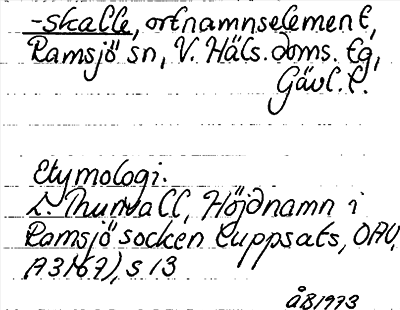 -skalle, ortnamnselement,
Ramsjö sn, V. Häls. doms. tg,
Gävl. l.
Etymologi.
L. Thunvall, Höjdnamn i
Ramsjö socken (uppsats, OAU,
A3167), s 13
ÅB1973